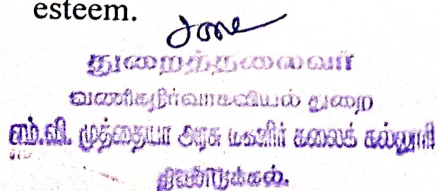 esteem.
துறைத்தலைவர்
வணிகநிர்வாகவியல் துறை
எம்.வி. முத்தையா அரசு மகளிர் கலைக் கல்லூரி
திண்டுக்கல்.